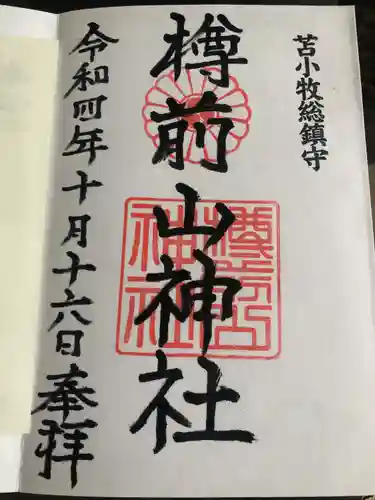 苫小牧総鎮守
樽前山神社
令和四年十月十六日奉拝
樽前山
神社